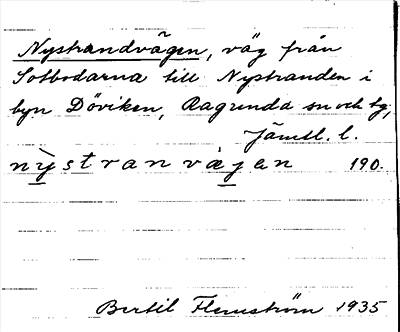 Nystrandvägen, väg från
Sotbodarna till Nystranden i
byn Döviken, Ragunda sn och tg,
Jämtl. l.
nỳstranvàgen 190.
Bertil Flemström 1935